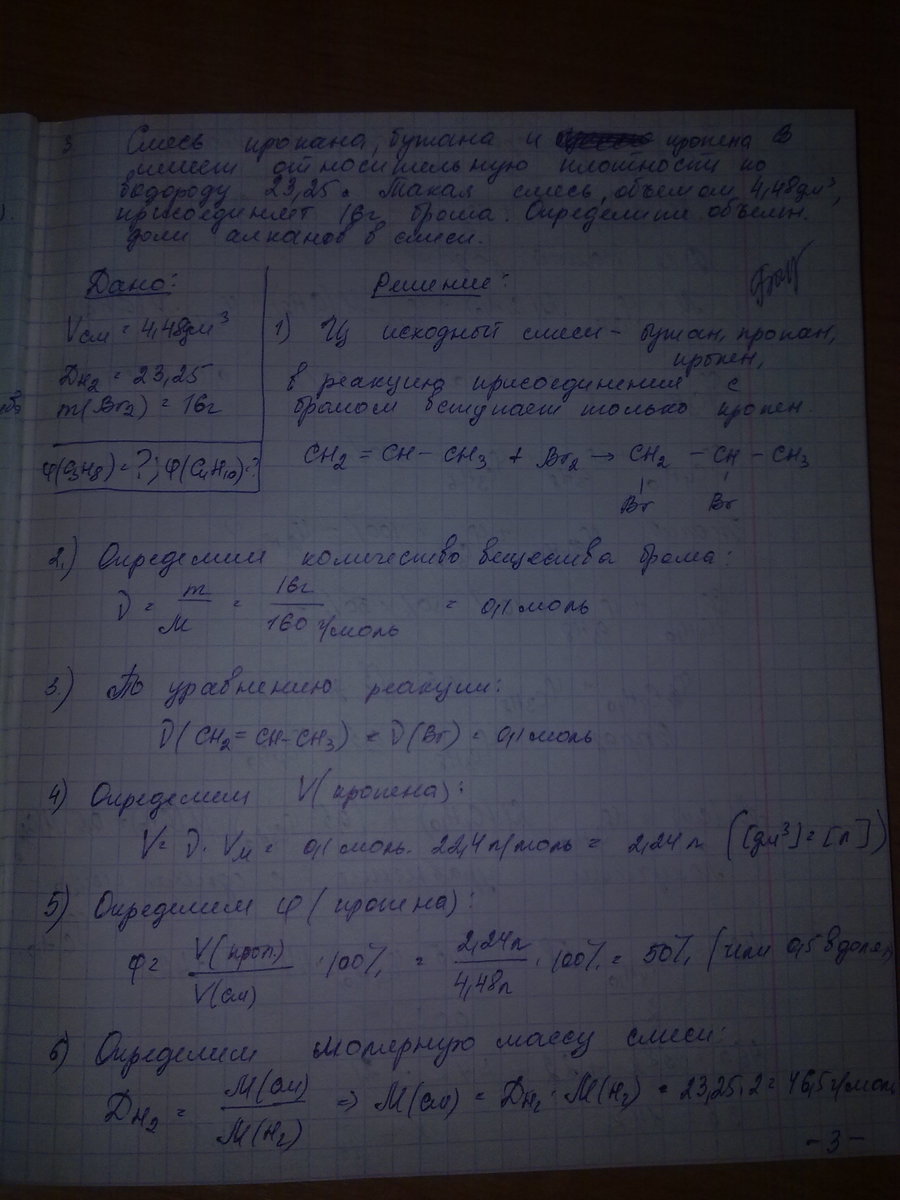 3 Смесь пропана, бутана и пропена
имеет относительную плотность по
водороду 23,25. Такая смесь, объемом 4,48дм³,
присоединяет 16г брома. Определите объемн.
доли алканов в смеси.
Дано:
Vсм = 4,48дм³
DH2 = 23,25
m(Br2) = 16г
φ(C3H8) = ?; φ(C4H10)-?
Решение:
1) Из исходной смеси – бутан, пропан,
пропен,
в реакцию присоединения с
бромом вступает только пропен.
CH2 = CH – CH3 + Br2 → CH2 – CH – CH3
Br Br
2.) Определим количество вещества брома:
ν = m/M = 16г/160 г/моль = 0,1 моль
3.) По уравнению реакции:
ν(CH2=CH-CH3) = ν(Br) = 0,1 моль
4) Определим V(пропена):
V = ν · Vм = 0,1 моль · 22,4 л/моль = 2,24 л ([дм³] = [л])
5) Определим φ(пропена):
φ = V(проп.)/V(см) · 100% = 2,24л/4,48л · 100% = 50% (или 0,5 в долях
6) Определим молярную массу смеси:
DH2 = M(см)/M(H2) ⇒ M(см) = DH2 · M(H2) = 23,25·2 = 46,5 г/моль
- 3 -